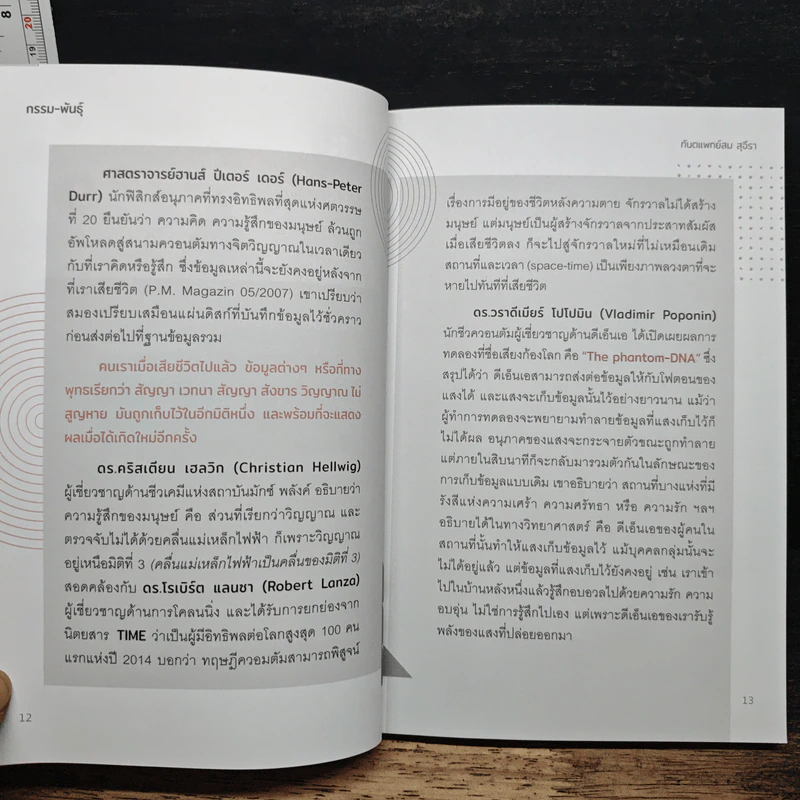 8
19
20
กรรม-พันธุ์
ศาสตราจารย์ฮานส์ ปีเตอร์ เดอร์ (Hans-Peter
Durr) นักฟิสิกส์อนุภาคที่ทรงอิทธิพลที่สุดแห่งศตวรรษ
ที่ 20 ยืนยันว่า ความคิด ความรู้สึกของมนุษย์ ล้วนถูก
อัพโหลดสู่สนามควอนตัมทางจิตวิญญาณในเวลาเดียว
กับที่เราคิดหรือรู้สึก ซึ่งข้อมูลเหล่านี้จะยังคงอยู่หลังจาก
ที่เราเสียชีวิต (P.M. Magazin 05/2007) เขาเปรียบว่า
สมองเปรียบเสมือนแผ่นดิสก์ที่บันทึกข้อมูลไว้ชั่วคราว
ก่อนส่งต่อไปที่ฐานข้อมูลรวม
คนเราเมื่อเสียชีวิตไปแล้ว ข้อมูลต่างๆ หรือที่ทาง
พุทธเรียกว่า สัญญา เวทนา สัญญา สังขาร วิญญาณ ไม่
สูญหาย มันถูกเก็บไว้ในอีกมิติหนึ่ง และพร้อมที่จะแสดง
ผลเมื่อได้เกิดใหม่อีกครั้ง
ดร.คริสเตียน เฮลวิก (Christian Hellwig)
ผู้เชี่ยวชาญด้านชีวเคมีแห่งสถาบันมักซ์ พลังค์ อธิบายว่า
ความรู้สึกของมนุษย์ คือ ส่วนที่เรียกว่าวิญญาณ และ
ตรวจจับไม่ได้ด้วยคลื่นแม่เหล็กไฟฟ้า ก็เพราะวิญญาณ
อยู่เหนือมิติที่ 3 (คลื่นแม่เหล็กไฟฟ้าเป็นคลื่นของมิติที่ 3)
สอดคล้องกับ ดร.โรเบิร์ต แลนซา (Robert Lanza)
ผู้เชี่ยวชาญด้านการโคลนนิ่ง และได้รับการยกย่องจาก
นิตยสาร TIME ว่าเป็นผู้มีอิทธิพลต่อโลกสูงสุด 100 คน
แรกแห่งปี 2014 บอกว่า ทฤษฎีควอมตัมสามารถพิสูจน์
12
ทันตแพทย์สม สุจีรา
เรื่องการมีอยู่ของชีวิตหลังความตาย จักรวาลไม่ได้สร้าง
มนุษย์ แต่มนุษย์เป็นผู้สร้างจักรวาลจากประสาทสัมผัส
เมื่อเสียชีวิตลง ก็จะไปสู่จักรวาลใหม่ที่ไม่เหมือนเดิม
สถานที่และเวลา (space-time) เป็นเพียงภาพลวงตาที่จะ
หายไปทันทีที่เสียชีวิต
ดร.วราดีเมียร์ โปโปมิน (Vladimir Poponin)
นักชีวควอนตัมผู้เชี่ยวชาญด้านดีเอ็นเอ ได้เปิดเผยผลการ
ทดลองที่ชื่อเสียงก้องโลก คือ “The phantom-DNA” ซึ่ง
สรุปได้ว่า ดีเอ็นเอสามารถส่งต่อข้อมูลให้กับโฟตอนของ
แสงได้ และแสงจะเก็บข้อมูลนั้นไว้อย่างยาวนาน แม้ว่า
ผู้ทำการทดลองจะพยายามทำลายข้อมูลที่แสงเก็บไว้ก็
ไม่ได้ผล อนุภาคของแสงจะกระจายตัวขณะถูกทำลาย
แต่ภายในสิบนาทีก็จะกลับมารวมตัวกันในลักษณะของ
การเก็บข้อมูลแบบเดิม เขาอธิบายว่า สถานที่บางแห่งที่มี
รังสีแห่งความเศร้า ความศรัทธา หรือ ความรัก ฯลฯ
อธิบายได้ในทางวิทยาศาสตร์ คือ ดีเอ็นเอของผู้คนใน
สถานที่นั้นทำให้แสงเก็บข้อมูลไว้ แม้บุคคลกลุ่มนั้นจะ
ไม่ได้อยู่แล้ว แต่ข้อมูลที่แสงเก็บไว้ยังคงอยู่ เช่น เราเข้า
ไปในบ้านหลังหนึ่งแล้วรู้สึกอบอวลไปด้วยความรัก ความ
อบอุ่น ไม่ใช่การรู้สึกไปเอง แต่เพราะดีเอ็นเอของเรารับรู้
พลังของแสงที่ปล่อยออกมา
13